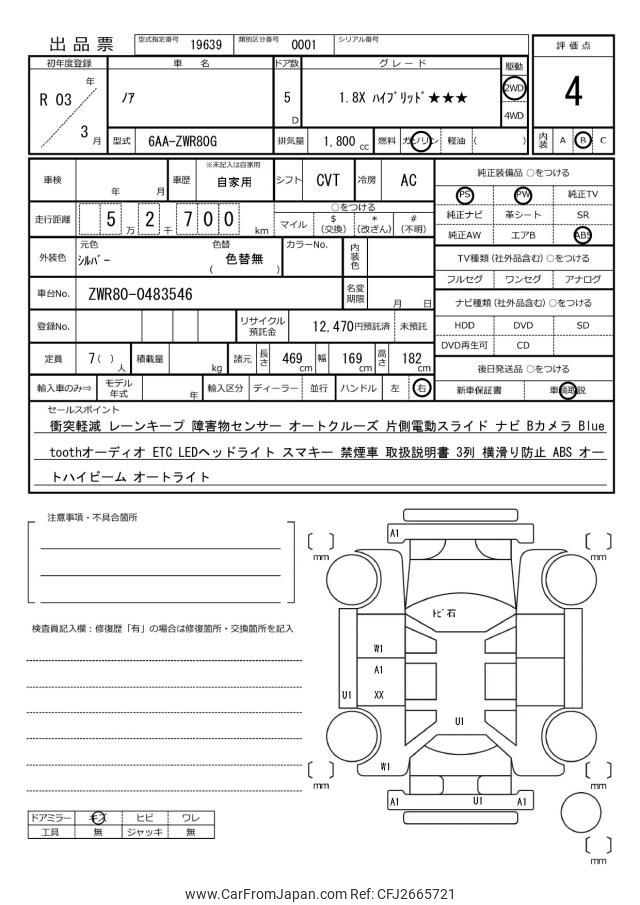 出品票
型式指定番号 19639 類別区分番号 0001 シリアル番号
評価点
4
内装 A B C
初年度登録 車名 ドア数 グレード 駆動
R 03 年 3 月
ﾉｱ
5 D
1.8X ﾊｲﾌﾞﾘｯﾄﾞ★★★
2WD
4WD
型式 6AA-ZWR80G 排気量 1,800 cc 燃料 ガソリン 軽油 ( )
車検 年 月 車歴 ※未記入は自家用 自家用 シフト CVT 冷房 AC
走行距離 5 万 2 千 7 0 0 km
○をつける
マイル $ (交換) * (改ざん) # (不明)
外装色 元色 ｼﾙﾊﾞｰ 色替 ( 色替無 ) カラーNo. 内装色
車台No. ZWR80-0483546 名変期限 月 日
登録No. リサイクル預託金 12,470円預託済 未預託
定員 7( ) 人 積載量 kg 諸元 長さ 469 cm 幅 169 cm 高さ 182 cm
輸入車のみ⇒ モデル年式 年 輸入区分 ディーラー 並行 ハンドル 左 右
純正装備品 ○をつける
PS PW 純正TV
純正ナビ 革シート SR
純正AW エアB ABS
TV種類 (社外品含む) ○をつける
フルセグ ワンセグ アナログ
ナビ種類 (社外品含む) ○をつける
HDD DVD SD
DVD再生可 CD
後日発送品 ○をつける
新車保証書 車輌取説
セールスポイント
衝突軽減 レーンキープ 障害物センサー オートクルーズ 片側電動スライド ナビ Bカメラ Blue
toothオーディオ ETC LEDヘッドライト スマキー 禁煙車 取扱説明書 3列 横滑り防止 ABS オー
トハイビーム オートライト
注意事項・不具合箇所
検査員記入欄：修復歴「有」の場合は修復箇所・交換箇所を記入
A1
mm
mm
ﾄﾋﾞ石
W1
A1
U1 XX
U1
W1
mm
mm
A1 U1 A1
mm
ドアミラー キズ ヒビ ワレ
工具 無 ジャッキ 無
www.CarFromJapan.com Ref: CFJ2665721